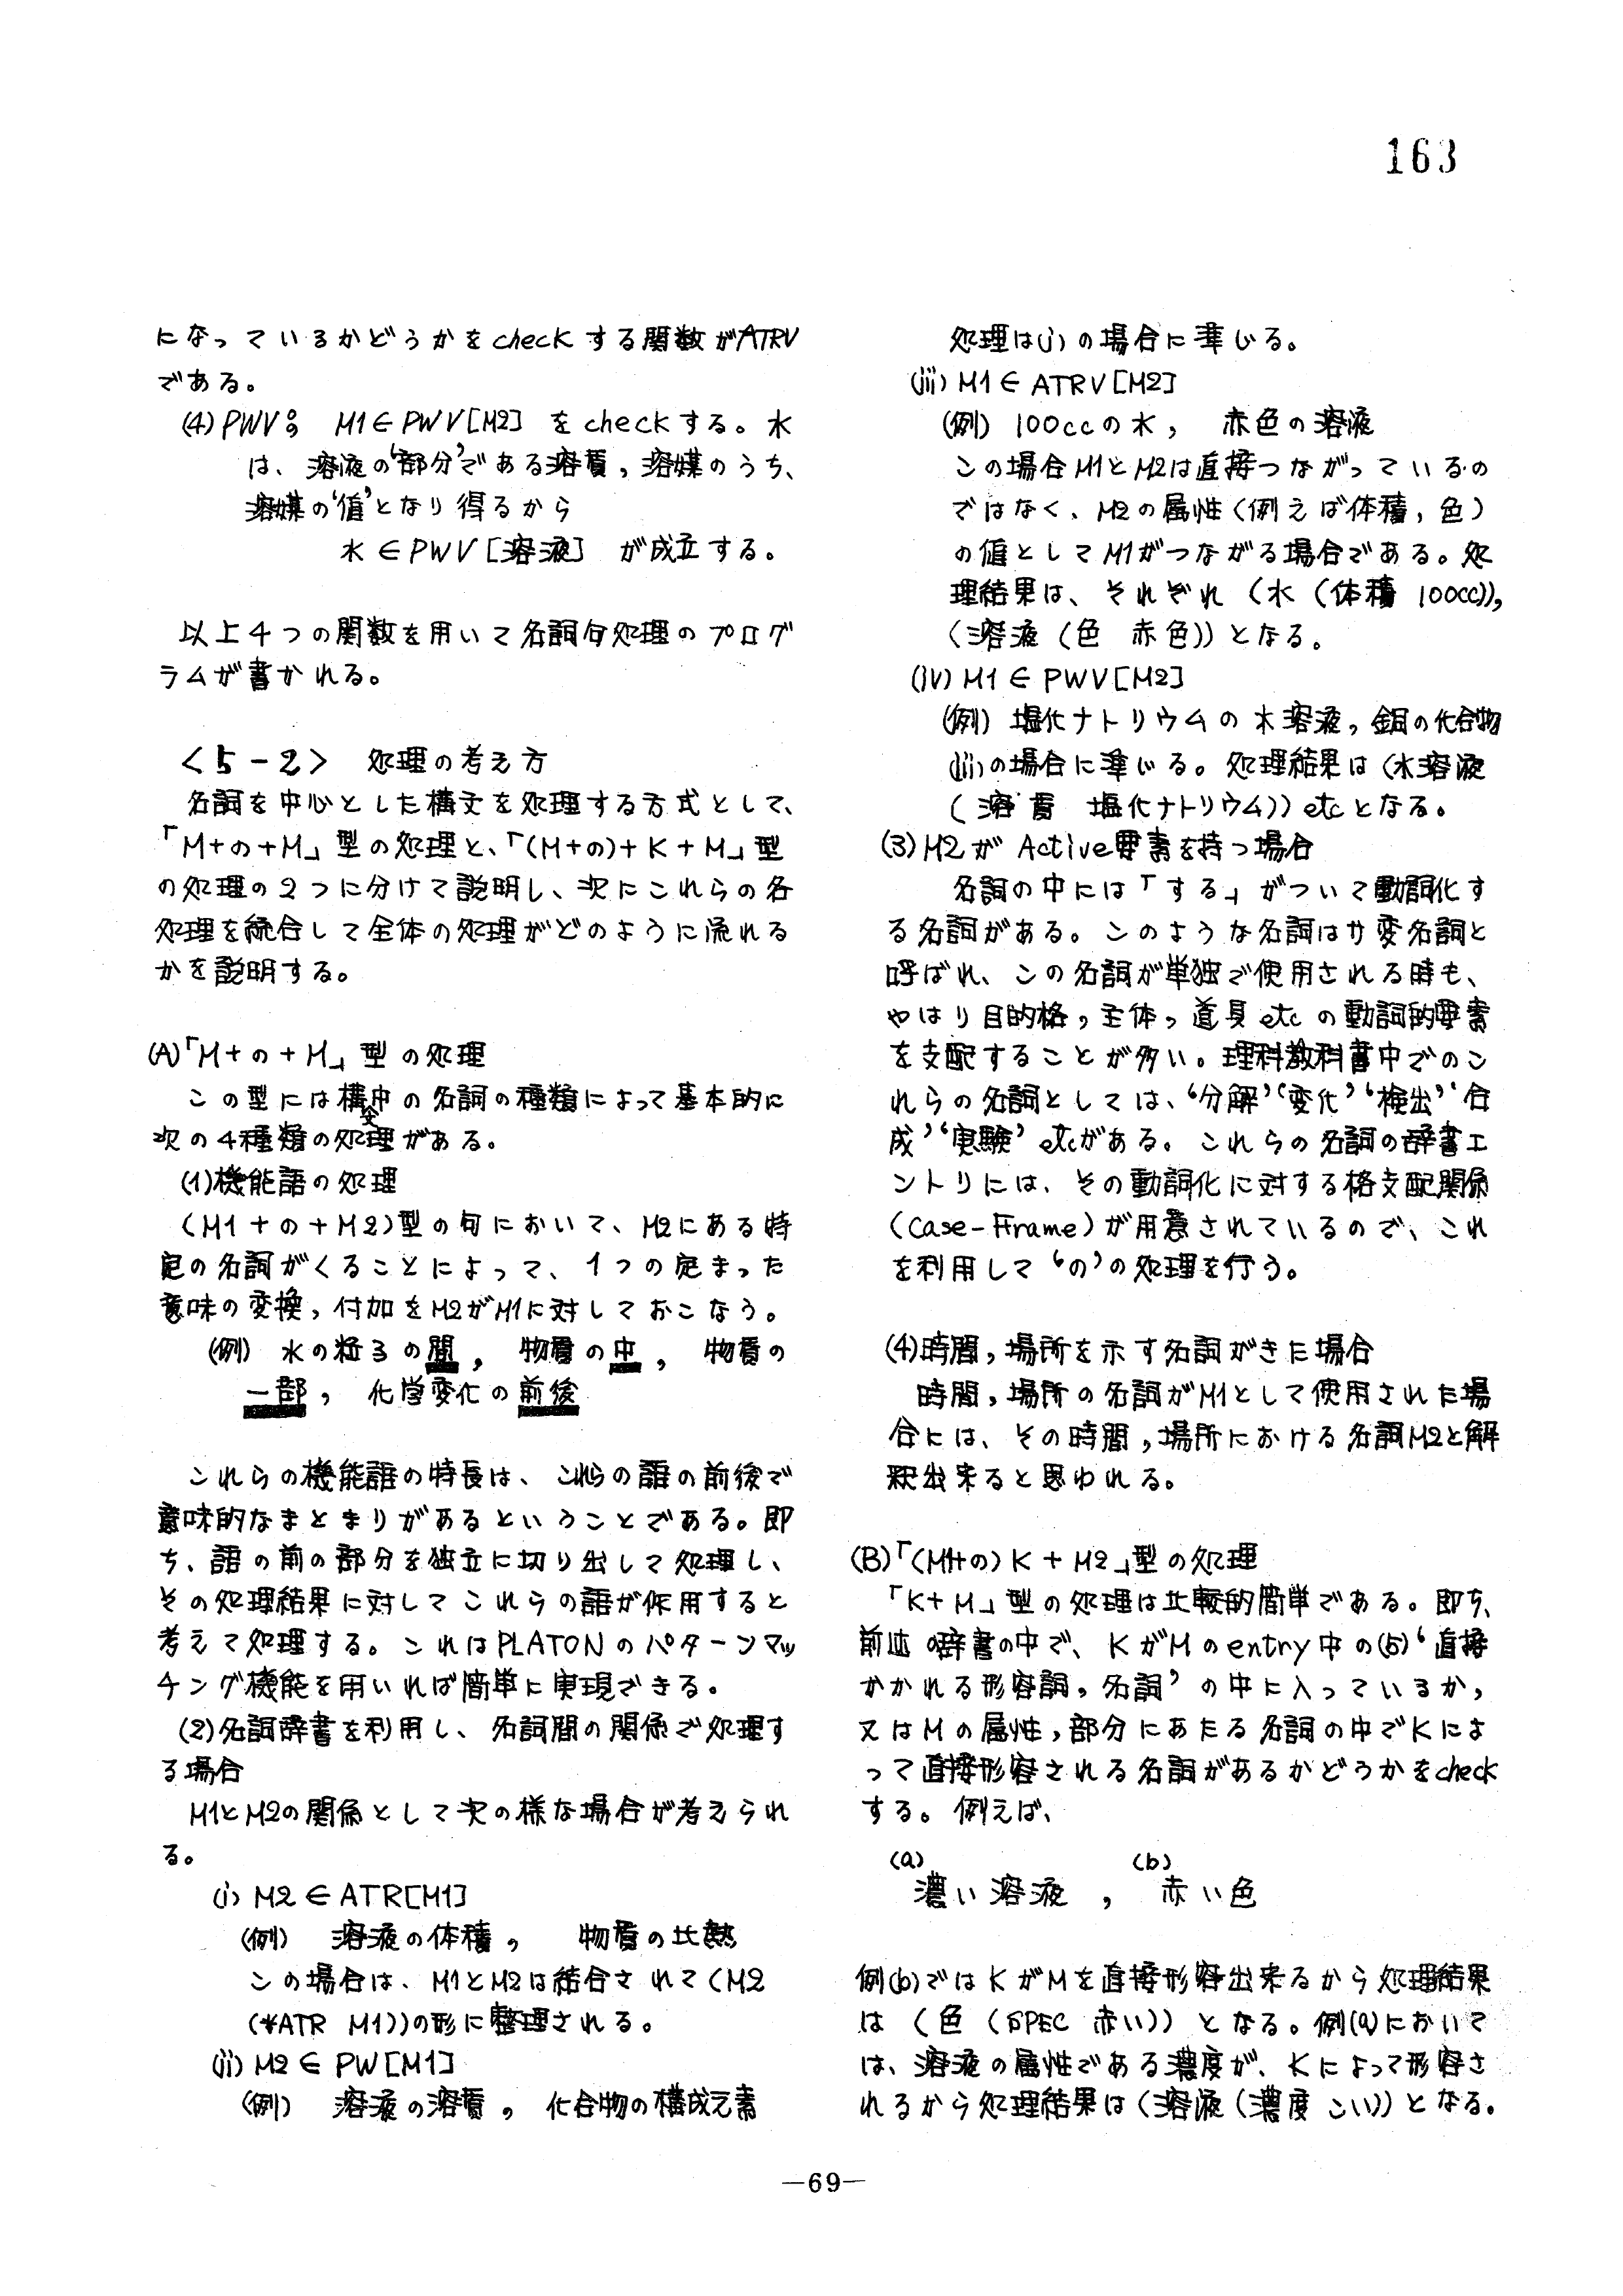 163
になっているかどうかをcheckする関数がATRV
である。
(4) PWV: M1∈PWV[M2] をcheckする。水
は、溶液の‘部分’である溶質,溶媒のうち、
溶媒の‘値’となり得るから
水∈PWV[溶液] が成立する。
以上4つの関数を用いて名詞句処理のプログ
ラムが書かれる。
<5-2> 処理の考え方
名詞を中心とした構文を処理する方式として、
「M+の+M」型の処理と、「(M+の)+K+M」型
の処理の2つに分けて説明し、次にこれらの各
処理を統合して全体の処理がどのように流れる
かを説明する。
(A)「M+の+M」型の処理
この型には構文中の名詞の種類によって基本的に
次の4種類の処理がある。
(1)機能語の処理
(M1+の+M2)型の句において、M2にある特
定の名詞がくることによって、1つの定まった
意味の変換,付加をM2がM1に対しておこなう。
(例) 水の粒子の間, 物質の中, 物質の
一部, 化学変化の前後
これらの機能語の特長は、これらの語の前後で
意味的なまとまりがあるということである。即
ち、語の前の部分を独立に切り出して処理し、
その処理結果に対してこれらの語が作用すると
考えて処理する。これはPLATONのパターンマッ
チング機能を用いれば簡単に実現できる。
(2)名詞辞書を利用し、名詞間の関係で処理す
る場合
M1とM2の関係として次の様な場合が考えられ
る。
(i) M2∈ATR[M1]
(例) 溶液の体積, 物質の比熱
この場合は、M1とM2は結合されて(M2
(*ATR M1))の形に整理される。
(ii) M2∈PW[M1]
(例) 溶液の溶質, 化合物の構成元素
処理は(i)の場合に準じる。
(iii) M1∈ATRV[M2]
(例) 100ccの水, 赤色の溶液
この場合M1とM2は直接つながっているの
ではなく、M2の属性(例えば体積,色)
の値としてM1がつながる場合である。処
理結果は、それぞれ(水(体積 100cc)),
(溶液(色 赤色))となる。
(iv) M1∈PWV[M2]
(例) 塩化ナトリウムの水溶液,銅の化合物
(iii)の場合に準じる。処理結果は(水溶液
(溶質 塩化ナトリウム))etcとなる。
(3)M2がActive要素を持つ場合
名詞の中には「する」がついて動詞化す
る名詞がある。このような名詞はサ変名詞と
呼ばれ、この名詞が単独で使用される時も、
やはり目的格,主体,道具etcの動詞的要素
を支配することが多い。理科教科書中でのこ
れらの名詞としては、‘分解’‘変化’‘検出’‘合
成’‘実験’etcがある。これらの名詞の辞書エ
ントリには、その動詞化に対する格支配関係
(Case-Frame)が用意されているので、これ
を利用して‘の’の処理を行う。
(4)時間,場所を示す名詞がきた場合
時間,場所の名詞がM1として使用された場
合には、その時間,場所における名詞M2と解
釈出来ると思われる。
(B)「(M1+の)K+M2」型の処理
「K+M」型の処理は比較的簡単である。即ち、
前述の辞書の中で、KがMのentry中の(5)‘直接
かかれる形容詞,名詞’の中に入っているか,
又はMの属性,部分にあたる名詞の中でKによ
って直接形容される名詞があるかどうかをcheck
する。例えば、
(a) (b)
濃い溶液 , 赤い色
例(b)ではKがMを直接形容出来るから処理結果
は(色(SPEC 赤い))となる。例(a)において
は、溶液の属性である濃度が、Kによって形容さ
れるから処理結果は(溶液(濃度 こい))となる。
—69—